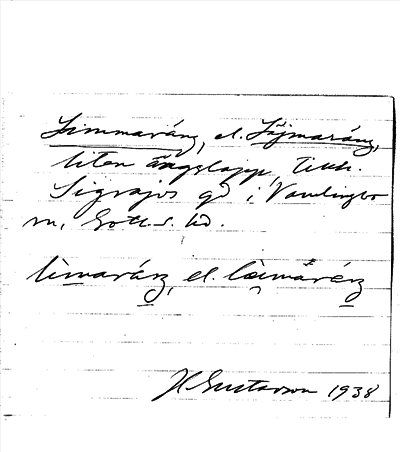 Limmaráng, el. Läjmaráng,
liten ängslapp, tillh.
Sigrajos gd i Vamlingbo
sn, Gotl. s. hd.
lìmaráng, el. làimåráng
H Gustavson 1938